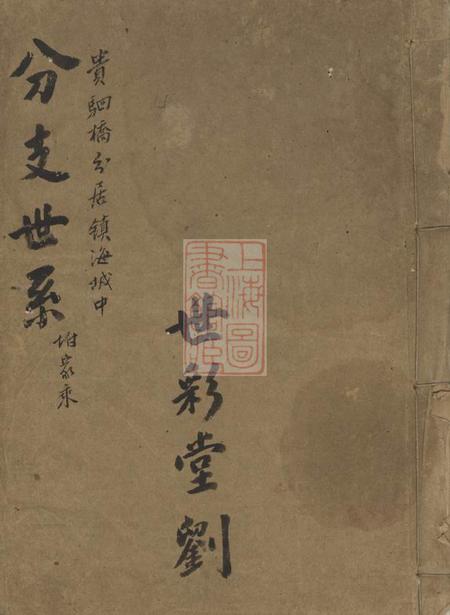 上海圖
書館藏
世彩堂劉
貴駟橋分居鎮海城中
分支世系
坿家乘